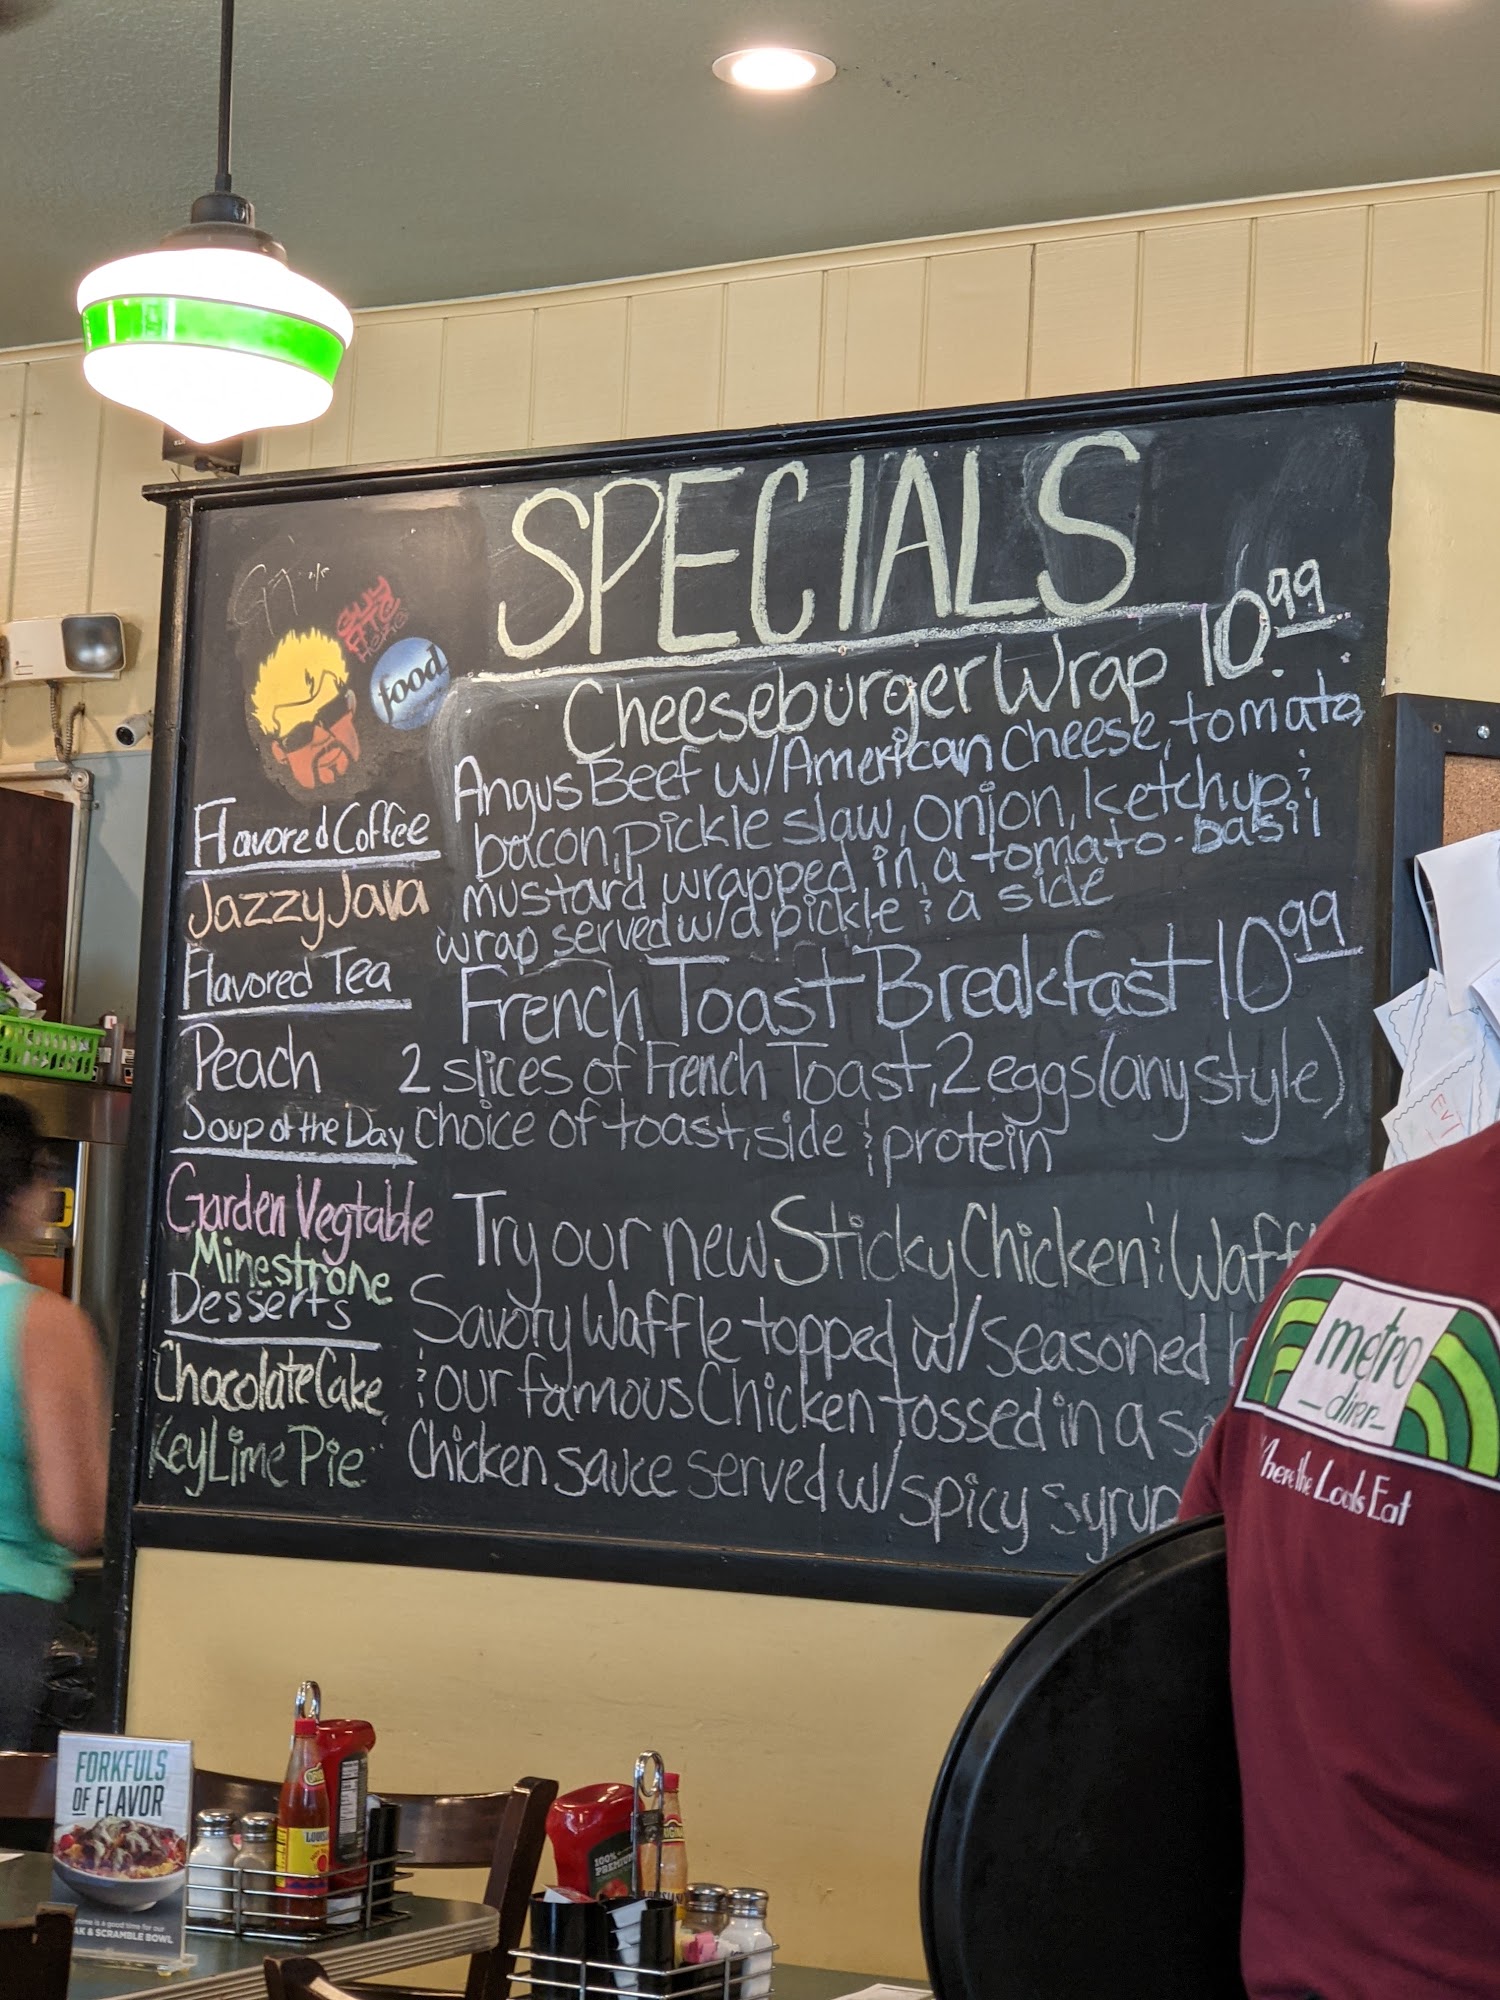 SPECIALS
Cheeseburger Wrap 10.99
Angus Beef w/American Cheese, tomato,
bacon, pickle slaw, onion, ketchup &
mustard wrapped in a tomato-basil
wrap served w/a pickle & a side
French Toast Breakfast 10.99
2 slices of French Toast, 2 eggs (any style)
choice of toast, side & protein
Try our new Sticky Chicken & Waff
Savory Waffle topped w/seasoned
& our famous Chicken tossed in a
Chicken sauce served w/spicy syrup
GUY
ATE
HERE
food
Flavored Coffee
Jazzy Java
Flavored Tea
Peach
Soup of the Day
Garden Vegtable
Minestrone
Desserts
Chocolate Cake
Key Lime Pie
metro
diner
Where the Locals Eat
FORKFULS
OF FLAVOR
time is a good time for our
AK & SCRAMBLE BOWL
100%
PREMIUM